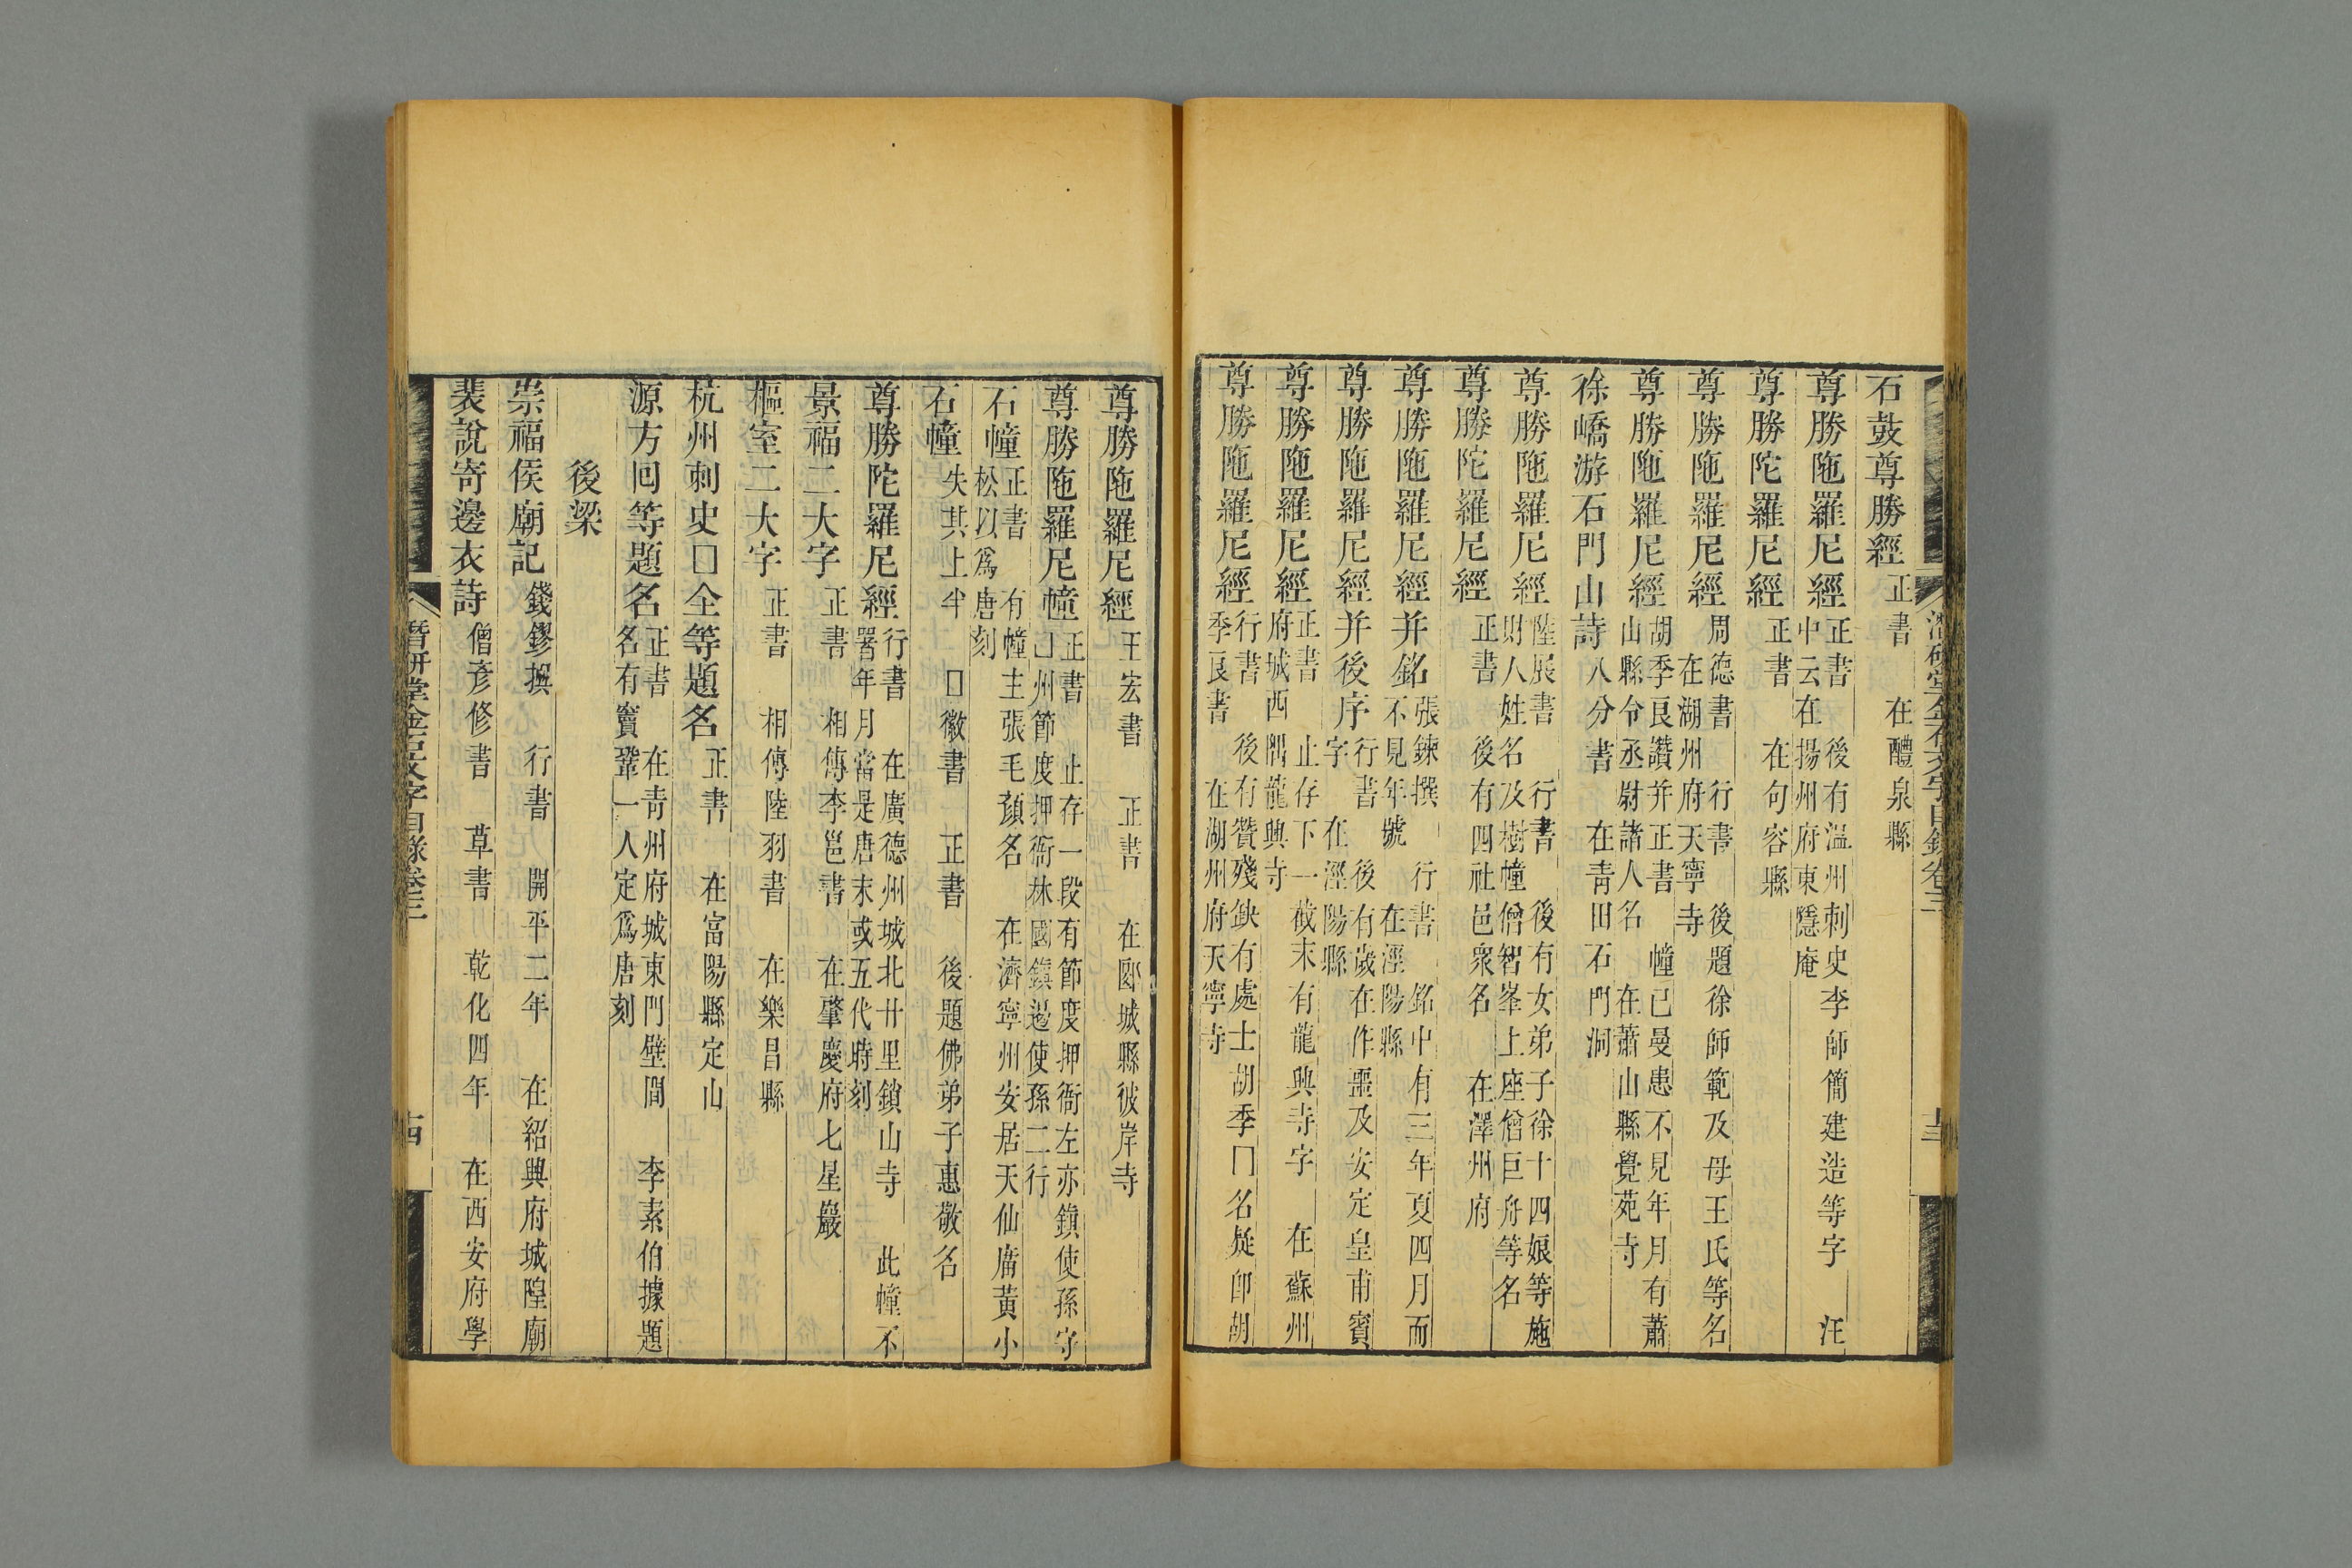 石鼓尊勝經 正書 在醴泉縣
尊勝陁羅尼經 正書 後有温州刺史李師簡建造等字 汪
中云在揚州府東隱庵
尊勝陀羅尼經 正書 在句容縣
尊勝陁羅尼經 周德書 行書 後題徐師範及母王氏等名
在湖州府天寧寺
尊勝陁羅尼經 胡季良讚并正書 幢已曼患不見年月有蕭
山縣令丞尉諸人名 在蕭山縣覺苑寺
徐嶠游石門山詩 八分書 在青田石門洞
尊勝陁羅尼經 陸展書 行書 後有女弟子徐十四娘等施
財人姓名及樹幢僧智峯上座僧巨舟等名
尊勝陀羅尼經 正書 後有四社邑衆名 在澤州府
尊勝陁羅尼經并銘 張鍊撰 行書 銘中有三年夏四月而
不見年號 在涇陽縣
尊勝陁羅尼經并後序 行書 後有歲在作噩及安定皇甫賓
字 在涇陽縣
尊勝陁羅尼經 正書 止存下一截末有龍興寺字 在蘇州
府城西隅龍興寺
尊勝陁羅尼經 行書 後有贊殘缺有處士胡季□名疑卽胡
季良書 在湖州府天寧寺
潛研堂金石文字目錄卷三
尊勝陁羅尼經 王宏書 正書 在郾城縣彼岸寺
尊勝陁羅尼幢 正書 止存一段有節度押衙左亦鎮使孫守
□州節度押衙林國鎮遏使孫二行
石幢 正書 有幢主張毛顏名 在濟寧州安居天仙廟黃小
松以爲唐刻
石幢 失其上半 □徽書 正書 後題佛弟子惠敬名
尊勝陀羅尼經 行書 在廣德州城北廿里鎖山寺 此幢不
署年月當是唐末或五代時刻
景福二大字 正書 相傳李邕書 在肇慶府七星巖
樞室二大字 正書 相傳陸羽書 在樂昌縣
杭州刺史□全等題名 正書 在富陽縣定山
源方回等題名 正書 在青州府城東門壁間 李素伯據題
名有竇鞏一人定爲唐刻
後梁
崇福侯廟記 錢鏐撰 行書 開平二年 在紹興府城隍廟
裴說寄邊衣詩 僧彥修書 草書 乾化四年 在西安府學
潛研堂金石文字目錄卷三
十四